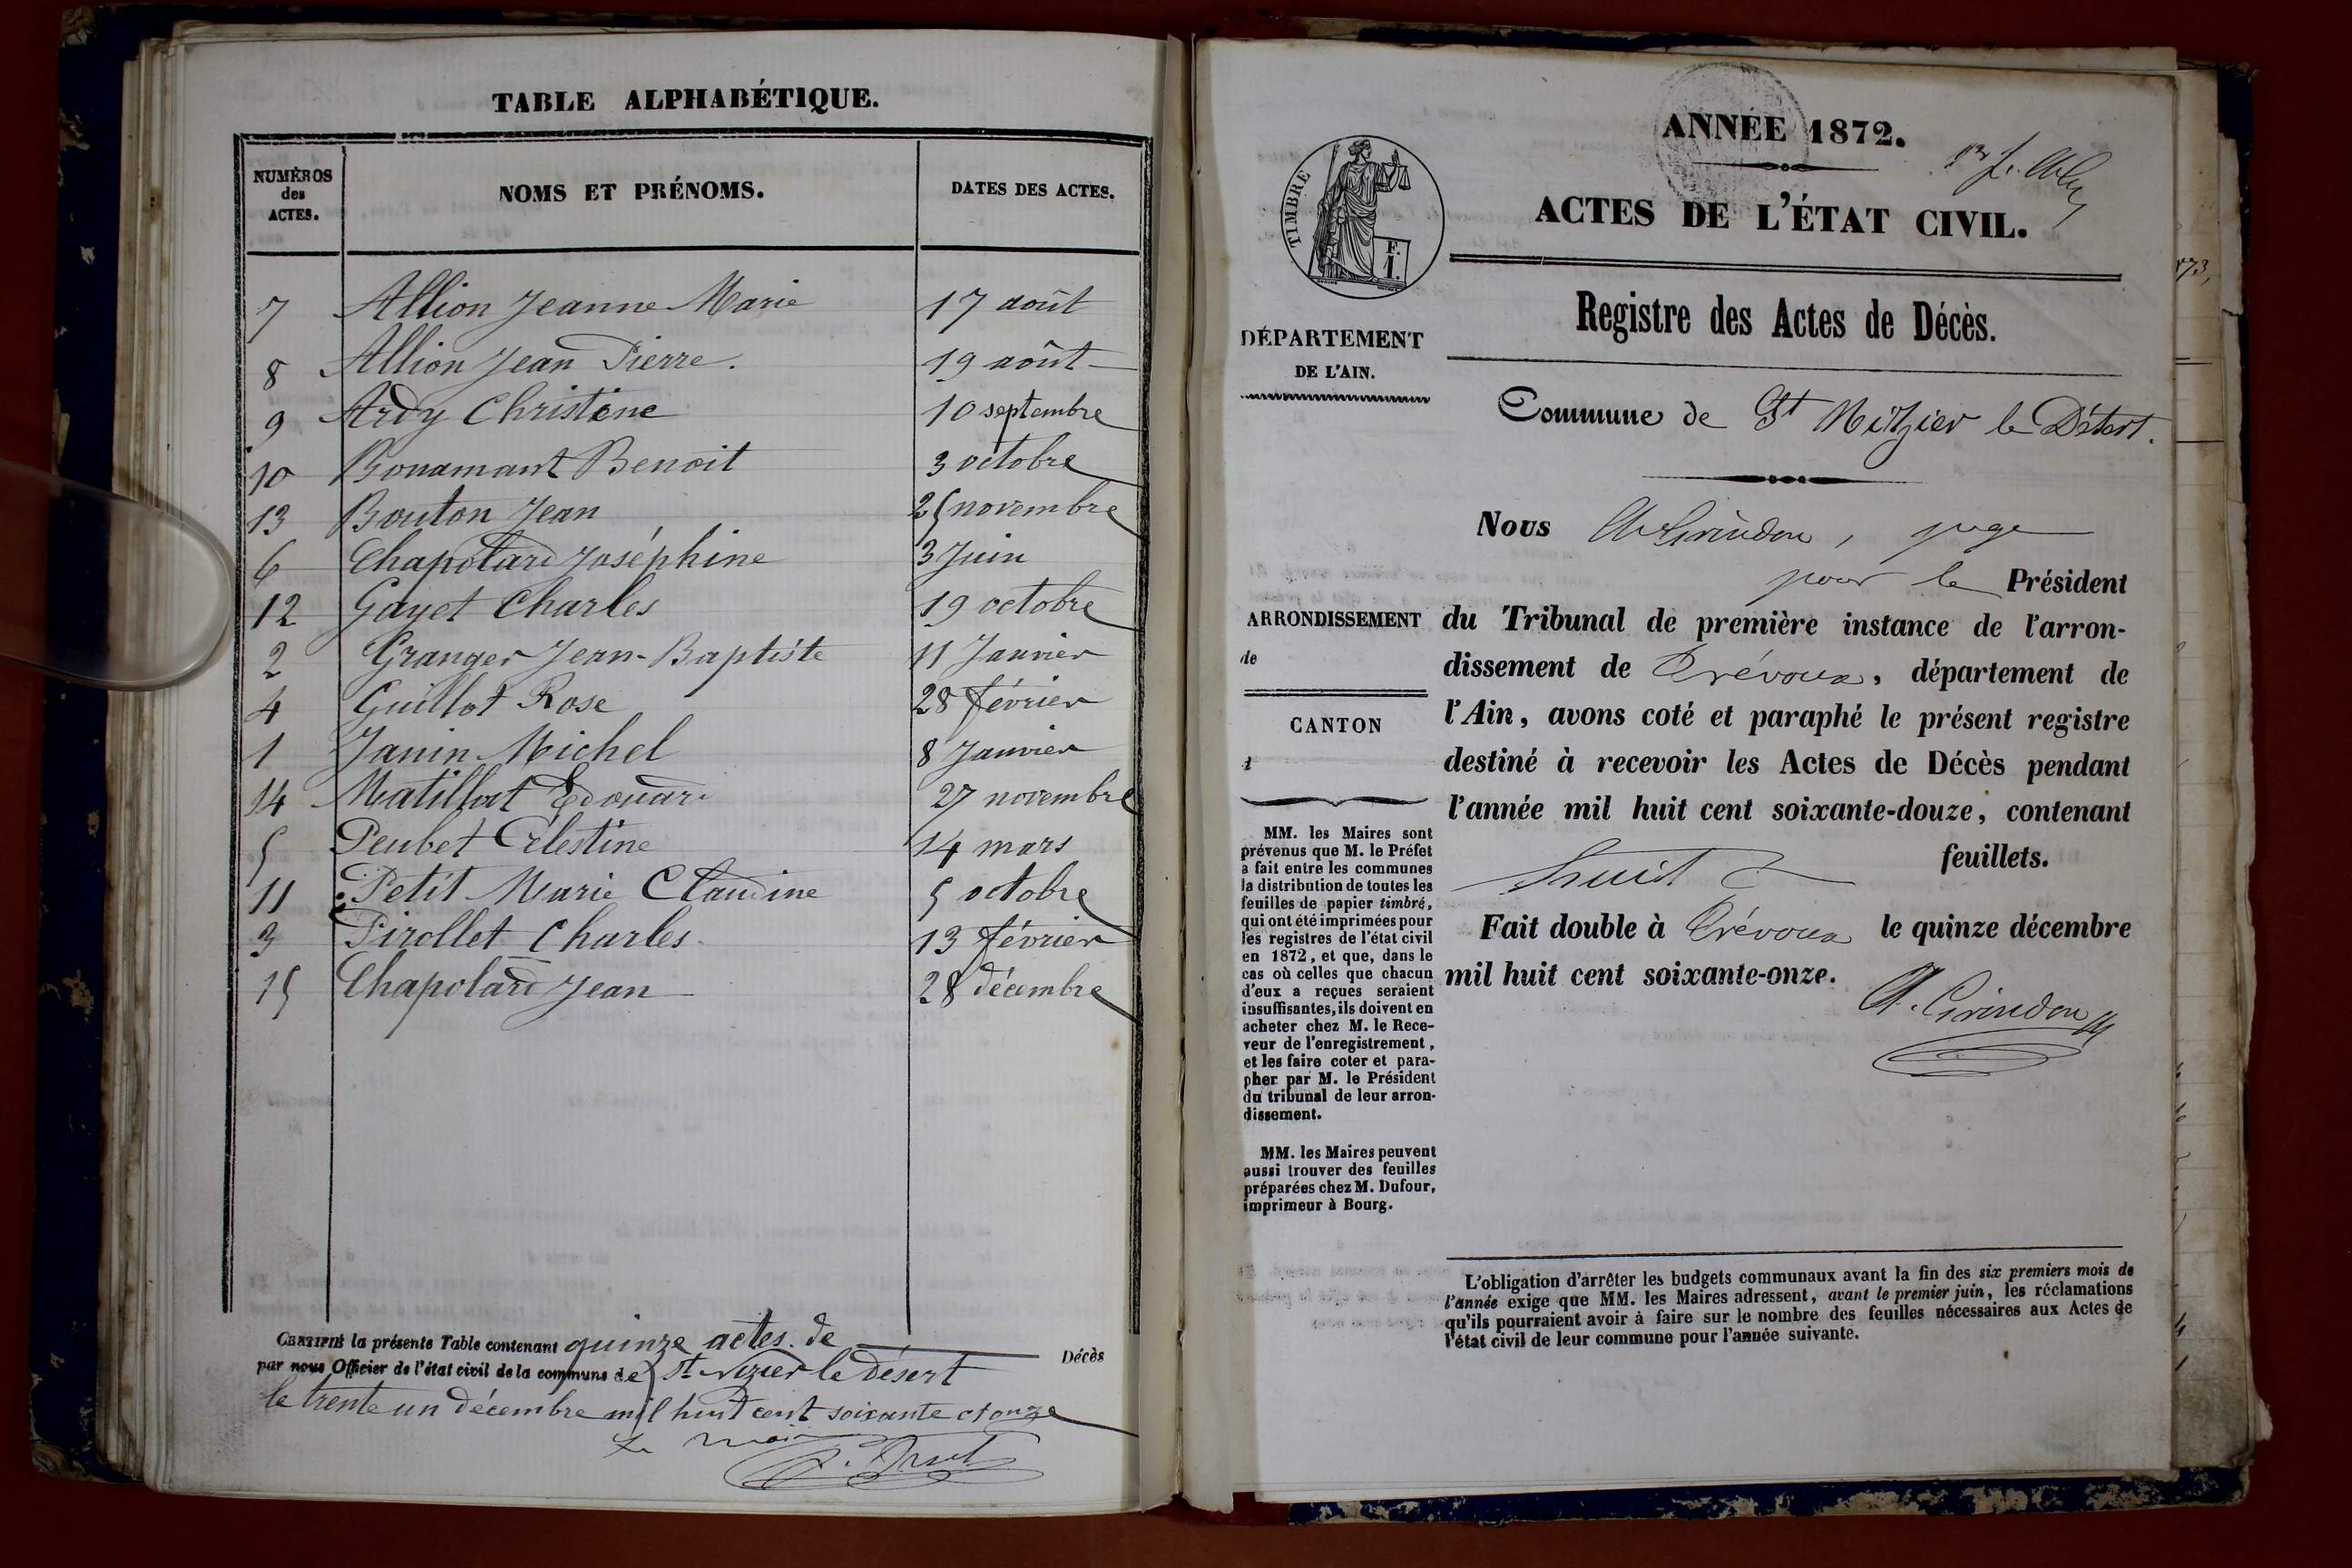 TABLE ALPHABÉTIQUE.
NUMÉROS des ACTES.
NOMS ET PRÉNOMS.
DATES DES ACTES.
7 Allion Jeanne Marie 17 août
8 Allion Jean Pierre. 19 août
9 Ardy Christine 10 septembre
10 Bonamant Benoit 3 octobre
13 Bouton Jean 25 novembre
6 Chapolard Joséphine 3 Juin
12 Gayet Charles 19 octobre
2 Granger Jean-Baptiste 11 Janvier
4 Guillot Rose 28 février
1 Janin Michel 8 Janvier
14 Matillat Edouard 27 novembre
5 Peubet Célestine 14 mars
11 Petit Marie Claudine 5 octobre
3 Pirollet Charles 13 février
15 Chapolard Jean 28 décembre
CERTIFIÉ la présente Table contenant quinze actes de Décès
par nous Officier de l'état civil de la commune de St Nizier le Désert
le trente un décembre mil huit cent soixante et onze
Le maire
ANNÉE 1872.
ACTES DE L'ÉTAT CIVIL.
TIMBRE
F.
1.
Registre des Actes de Décès.
DÉPARTEMENT
DE L'AIN.
Commune de St Nizier le Désert.
Nous A Grindon, juge
pour le Président
ARRONDISSEMENT
de
CANTON
du Tribunal de première instance de l'arron-
dissement de Trévoux, département de
l'Ain, avons coté et paraphé le présent registre
destiné à recevoir les Actes de Décès pendant
l'année mil huit cent soixante-douze, contenant
huit feuillets.
Fait double à Trévoux le quinze décembre
mil huit cent soixante-onze.
A. Grindon
MM. les Maires sont
prévenus que M. le Préfet
a fait entre les communes
la distribution de toutes les
feuilles de papier timbré,
qui ont été imprimées pour
les registres de l'état civil
en 1872, et que, dans le
cas où celles que chacun
d'eux a reçues seraient
insuffisantes, ils doivent en
acheter chez M. le Rece-
veur de l'enregistrement,
et les faire coter et para-
pher par M. le Président
du tribunal de leur arron-
dissement.
MM. les Maires peuvent
aussi trouver des feuilles
préparées chez M. Dufour,
imprimeur à Bourg.
L'obligation d'arrêter les budgets communaux avant la fin des six premiers mois de
l'année exige que MM. les Maires adressent, avant le premier juin, les réclamations
qu'ils pourraient avoir à faire sur le nombre des feuilles nécessaires aux Actes de
l'état civil de leur commune pour l'année suivante.